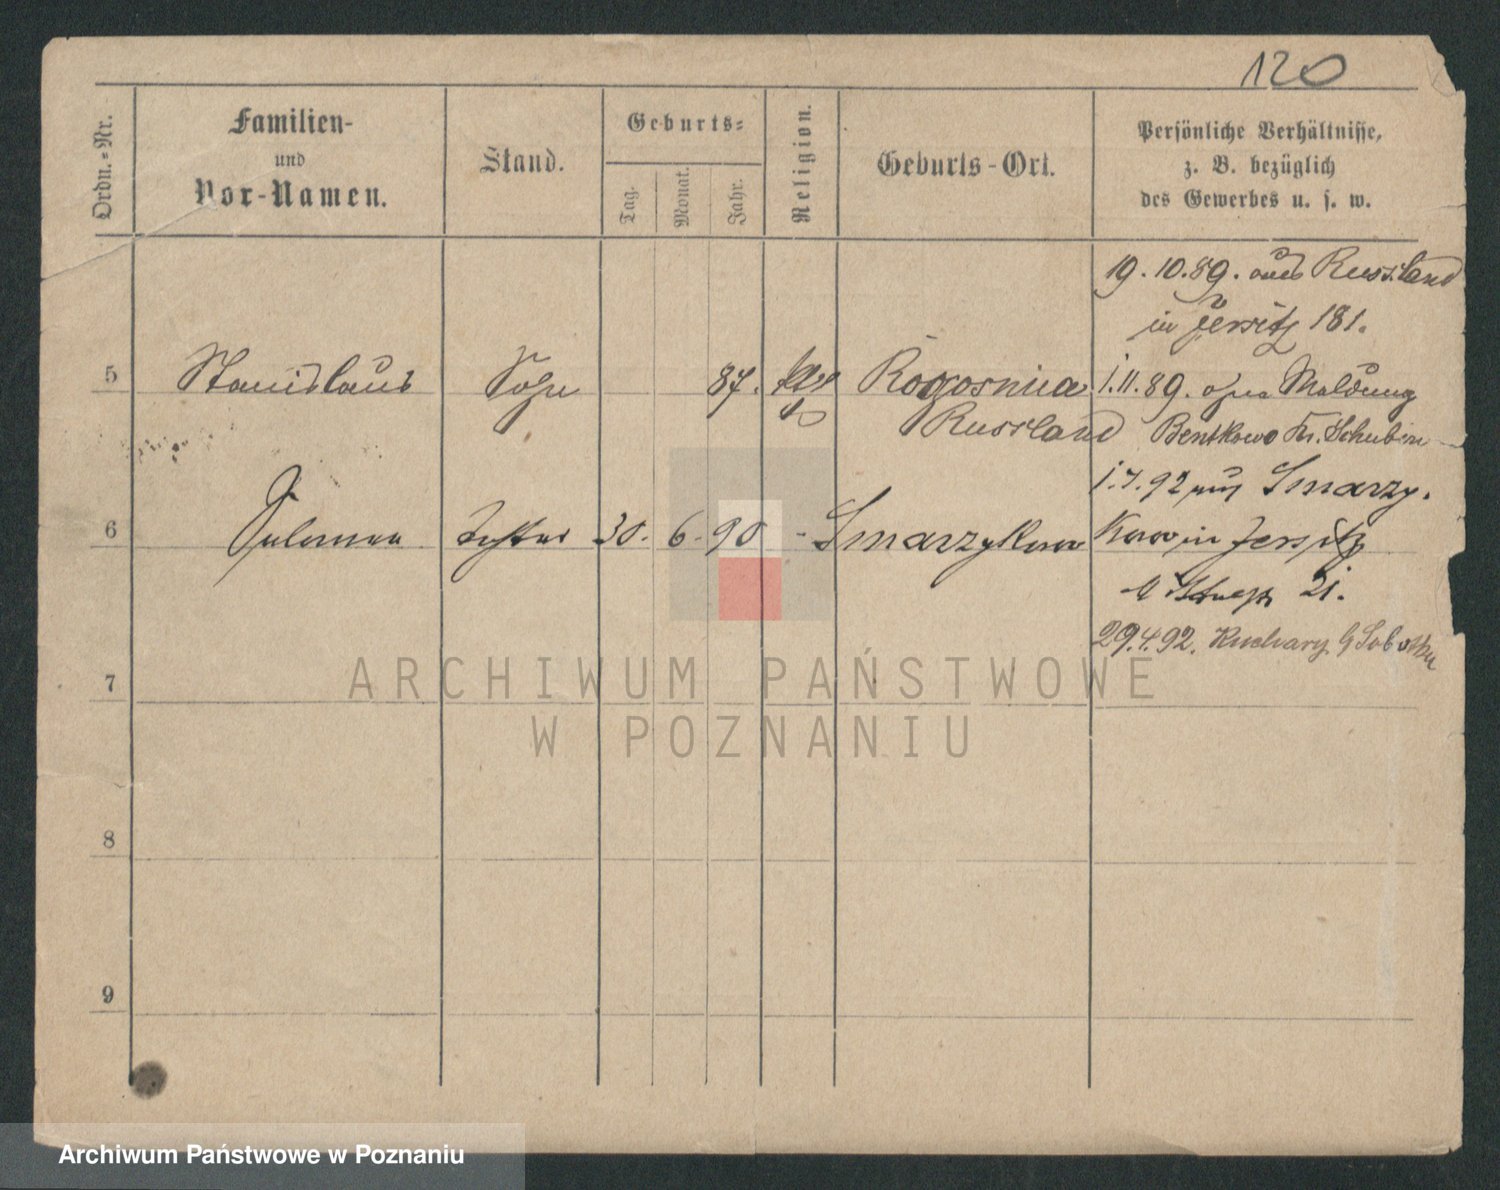 120
Ordn.-Nr.
Familien-
und
Vor-Namen.
Stand.
Geburts-
Tag.
Monat.
Jahr.
Religion.
Geburts-Ort.
Persönliche Verhältnisse,
z. B. bezüglich
des Gewerbes u. s. w.
19.10.89. aus Russland
in Jersitz 181.
5 Stanislaus Sohn 87. Rogosnica 1.11.89. ohne Meldung
Russland Bentkowo Kr. Schubin
1.4.92 aus Smarzy.
6 Salomea Tochter 30. 6. 90 - Smarzykowo kowo in Jersitz
21.
29.4.92.
7
8
9
ARCHIWUM PAŃSTWOWE
W POZNANIU
Archiwum Państwowe w Poznaniu